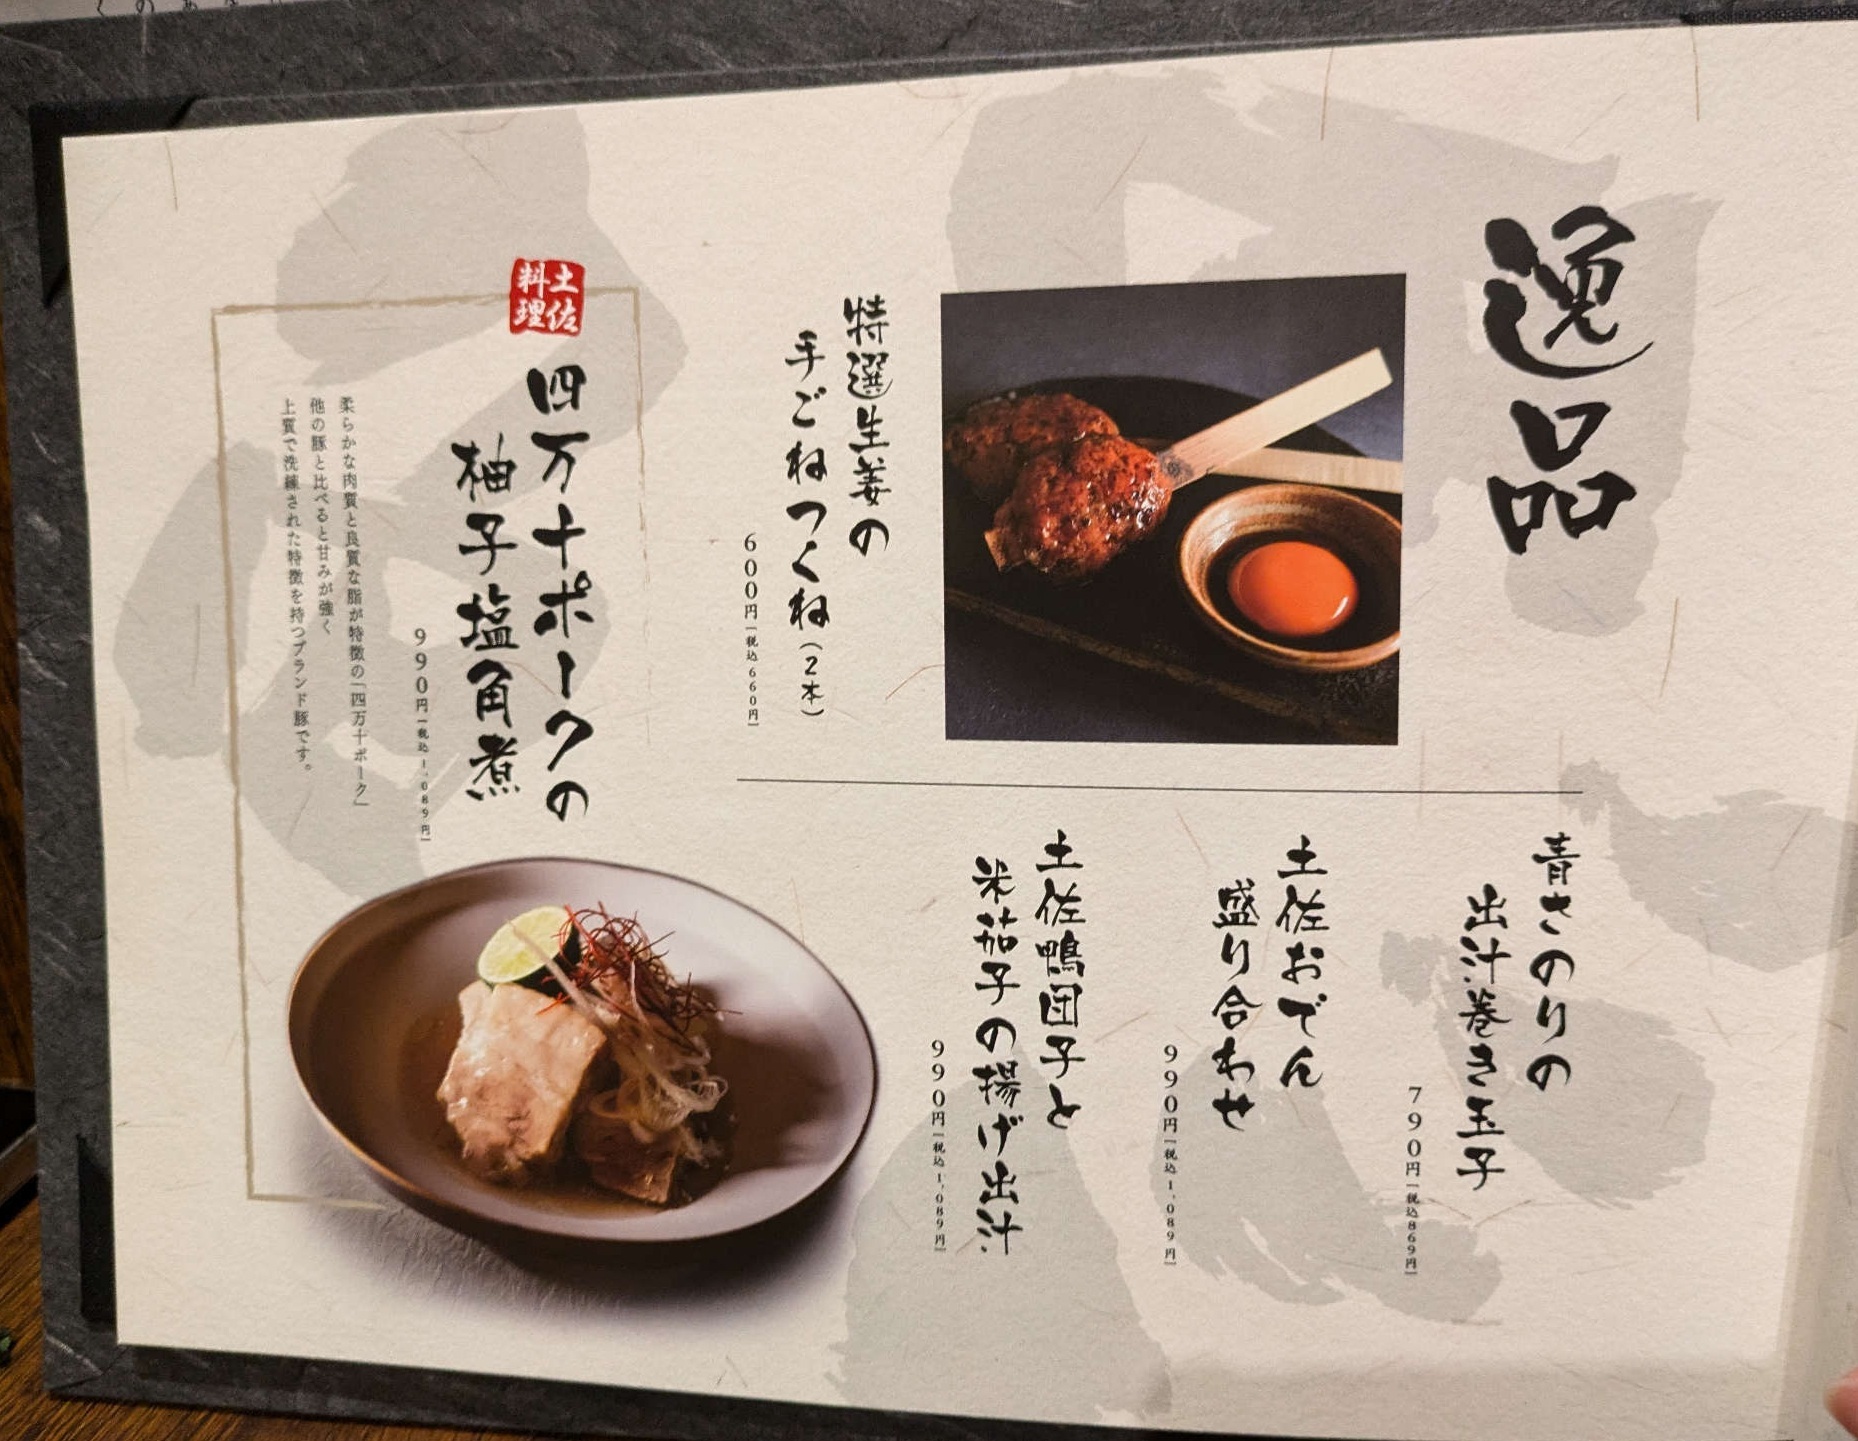 逸品
特選生姜の
手ごねつくね(2本)
600円[税込660円]
青さのりの
出汁巻き玉子
790円[税込869円]
土佐おでん
盛り合わせ
990円[税込1,089円]
土佐鴨団子と
米茄子の揚げ出汁
990円[税込1,089円]
土佐
料理
四万十ポークの
柚子塩角煮
990円[税込1,089円]
柔らかな肉質と良質な脂が特徴の「四万十ポーク」
他の豚と比べると甘みが強く
上質で洗練された特徴を持つブランド豚です。